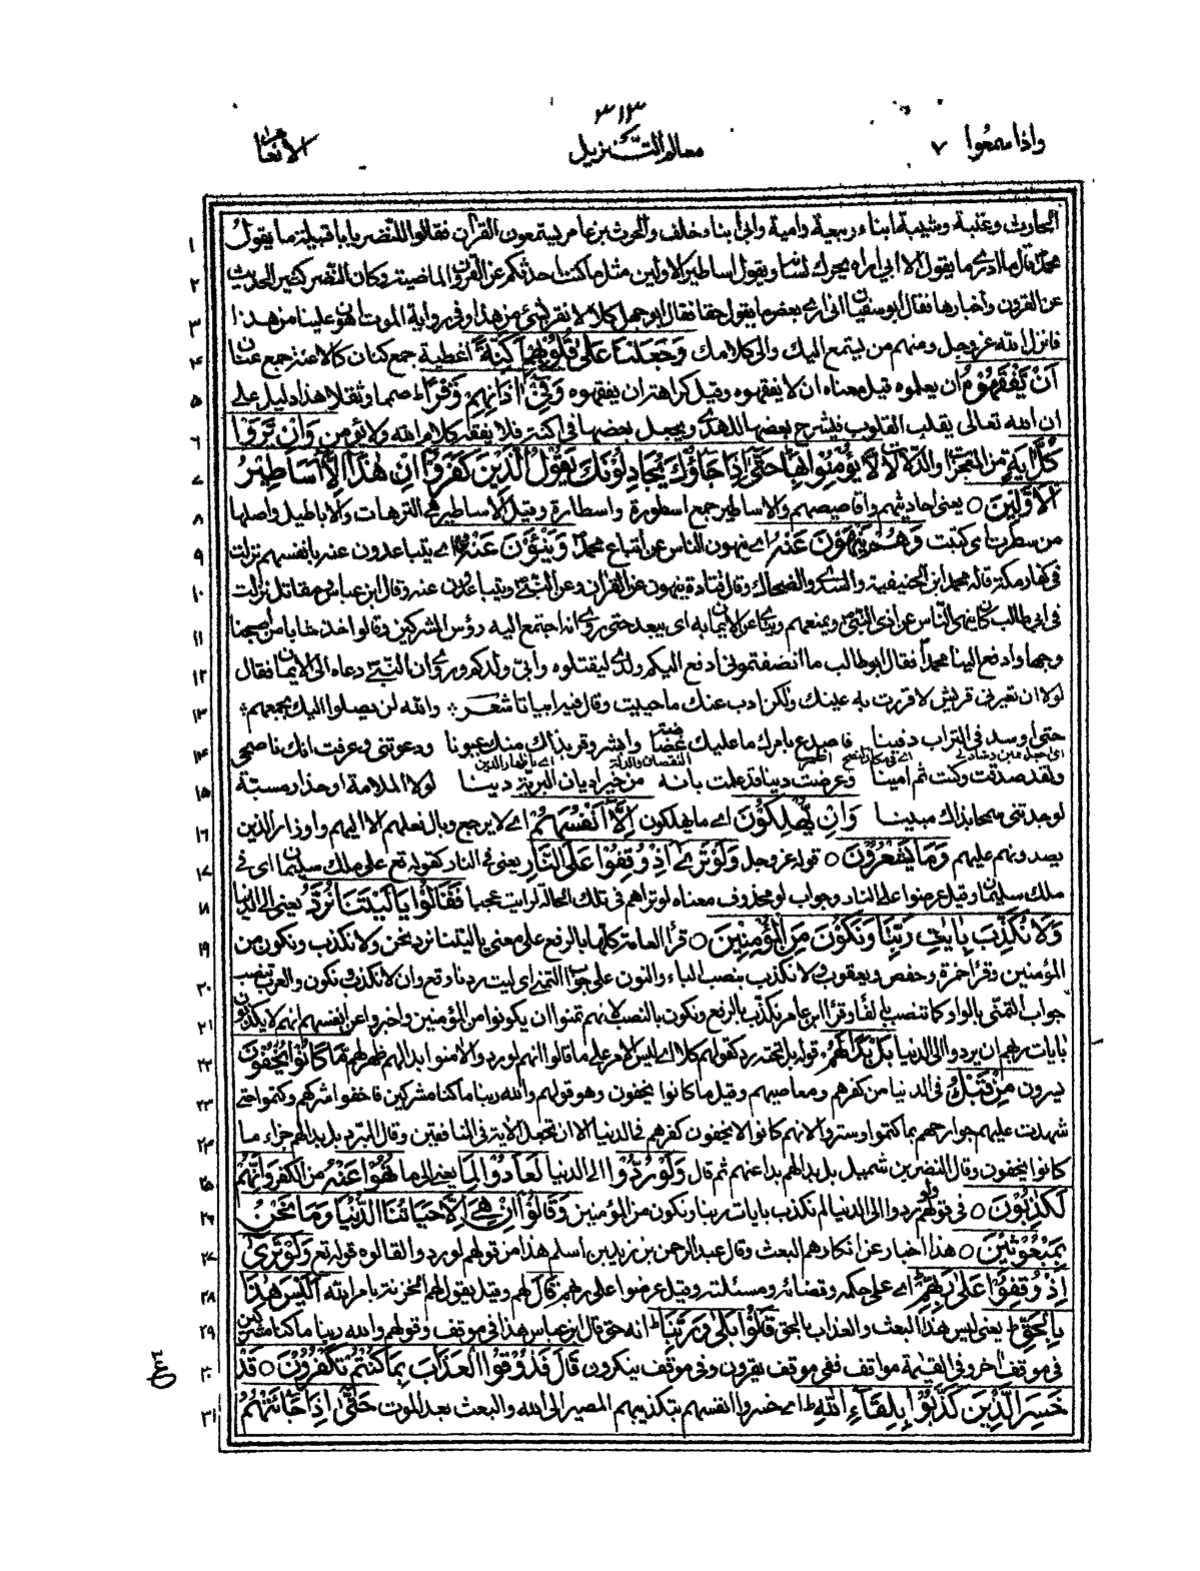 ٣١٣
واذا سمعوا ٧ معالم التنزيل الانعام
الحارث وعتبة وشيبة ابناء ربيعة وامية وابي ابناء خلف والحرث بن عامر يستمعون القرآن فقالوا للنضر يا با قبيلة ما يقول ١
محمد قال ما ادري ما يقول الا اني اراه يحرك لسانه ويقول اساطير الاولين مثل ما كنت احدثكم عن القرون الماضية وكان النضر كثير الحديث ٢
عن القرون واخبارها فقال ابو سفيان اني ارى بعض ما يقول حقا فقال ابو جهل كلا لا نقر بشئ من هذا وفي رواية الموت اهون علينا من هذا ٣
فانزل الله عز وجل ومنهم من يستمع اليك والى كلامك وَجَعَلْنَا عَلىٰ قُلُوْبِهِمْ اَكِنَّةً اغطية جمع كنان كالاعنة جمع عنان ٤
اَنْ يَّفْقَهُوْهُ ان يعلموه قيل معناه ان لا يفقهوه وقيل كراهة ان يفقهوه وَفِيْٓ اٰذَانِهِمْ وَقْرًا ط صمما وثقلا هذا دليل على ٥
ان الله تعالى يقلب القلوب فيشرح بعضها للهدى ويجعل بعضها في اكنة فلا يفقه كلام الله ولا يؤمن وَاِنْ يَّرَوْا ٦
كُلَّ اٰيَةٍ من المعجزات والدلالات لَّا يُؤْمِنُوْا بِهَا حَتّٰى اِذَا جَاؤُكَ يُجَادِلُوْنَكَ يَقُوْلُ الَّذِيْنَ كَفَرُوْٓا اِنْ هٰذَآ اِلَّآ اَسَاطِيْرُ ٧
الْاَوَّلِيْنَ ○ يعني احاديثهم واقاصيصهم والاساطير جمع اسطورة واسطارة وقيل الاساطير هي الترهات والاباطيل واصلها ٨
من سطرت اى كتبت وَهُمْ يَنْهَوْنَ عَنْهُ اى ينهون الناس عن اتباع محمد وَيَنْئَوْنَ عَنْهُ اى يتباعدون عنه بانفسهم نزلت ٩
في كفار مكة قاله محمد ابن الحنيفية والسدي والضحاك وقال قتادة ينهون عن القران وعن النبي ويتباعدون عنه وقال ابن عباس ومقاتل نزلت ١٠
في ابي طالب كان ينهى الناس عن اذى النبي ويمنعهم وينأى عن الايمان به اى يبعد حتى روى انه اجتمع اليه رؤس المشركين وقالوا خذ شابا من اصبحنا ١١
وجها وادفع الينا محمدا فقال ابو طالب ما انصفتموني ادفع اليكم ولدي لتقتلوه واربى ولدكم وروى ان النبي دعاه الى الايمان فقال ١٢
لولا ان تعيرني قريش لاقررت به عينك ولكن اذب عنك ما حييت وقال فيه ابياتا شعر؞ والله لن يصلوا اليك بجمعهم؞ ١٣
حتى اوسد في التراب دفينا فاصدع بامرك ما عليك غضاضة وابشر وقر بذاك منك عيونا ودعوتني وعرفت انك ناصحي ١٤
ولقد صدقت وكنت ثم امينا وعرضت دينا قد علمت بانه من خير اديان البرية دينا لولا الملامة او حذار مسبة ١٥
لوجدتني سمحا بذاك مبينا وَاِنْ يُّهْلِكُوْنَ اى ما يهلكون اِلَّآ اَنْفُسَهُمْ اى لا يرجع وبال فعلهم الا اليهم واوزار الذين ١٦
يصدونهم عليهم وَمَا يَشْعُرُوْنَ ○ قوله عز وجل وَلَوْ تَرٰٓى اِذْ وُقِفُوْا عَلَى النَّارِ يعني في النار كقوله تع على ملك سليمان اى في ١٧
ملك سليمان وقيل عرضوا على النار وجواب لو محذوف معناه لو تراهم في تلك الحالة لرايت عجبا فَقَالُوْا يَا لَيْتَنَا نُرَدُّ يعني الى الدنيا ١٨
وَلَا نُكَذِّبَ بِاٰيٰتِ رَبِّنَا وَنَكُوْنَ مِنَ الْمُؤْمِنِيْنَ ○ قرأ العامة كلها بالرفع على معنى يا ليتنا نرد ونحن ولا نكذب ونكون من ١٩
المؤمنين وقرأ حمزة وحفص ويعقوب ولا نكذب بنصب الباء والنون على جواب التمني اى ليت ردنا وقع وان لا نكذب ونكون والعرب تنصب ٢٠
جواب التمني بالواو كما تنصب بالفاء وقرأ ابن عامر نكذب بالرفع ونكون بالنصب لانهم تمنوا ان يكونوا من المؤمنين واخبروا عن انفسهم انهم لا يكذبون ٢١
بايات ربهم ان ردوا الى الدنيا بَلْ بَدَا لَهُمْ قوله بل تحته رد كقولهم كلا اى ليس الامر على ما قالوا انهم لو ردوا لآمنوا بدا لهم ظهر لهم مَّا كَانُوْا يُخْفُوْنَ ٢٢
يسرون مِنْ قَبْلُ في الدنيا من كفرهم ومعاصيهم وقيل ما كانوا يخفون وهو قولهم والله ربنا ما كنا مشركين فاخفوا شركهم وكتموا حتى ٢٣
شهدت عليهم جوارحهم بما كتموا وستروا لانهم كانوا لا يخفون كفرهم في الدنيا الا ان تجعل الاية في المنافقين وقال المبرد بل بدا لهم جزاء ما ٢٤
كانوا يخفون وقال النضر بن شميل بل بدا لهم بدا عنهم ثم قال وَلَوْ رُدُّوْا الى الدنيا لَعَادُوْا لِمَا يعني الى ما نُهُوْا عَنْهُ من الكفر وَاِنَّهُمْ ٢٥
لَكٰذِبُوْنَ ○ في قولهم لو ردوا الى الدنيا لم نكذب بايات ربنا ونكون من المؤمنين وَقَالُوْٓا اِنْ هِيَ اِلَّا حَيَاتُنَا الدُّنْيَا وَمَا نَحْنُ ٢٦
بِمَبْعُوْثِيْنَ ○ هذا اخبار عن انكارهم البعث وقال عبد الرحمن بن زيد بن اسلم هذا من قولهم لو ردوا لقالوه قوله تع وَلَوْ تَرٰٓى ٢٧
اِذْ وُقِفُوْا عَلىٰ رَبِّهِمْ ط اى على حكمه وقضائه ومسئلته وقيل عرضوا على ربهم قَالَ لهم وقيل يقول لهم الخزنة بامر الله اَلَيْسَ هٰذَا ٢٨
بِالْحَقِّ ط يعني ليس هذا البعث والعذاب بالحق قَالُوْا بَلىٰ وَرَبِّنَا ط انه حق قال ابن عباس هذا في موقف وقولهم والله ربنا ما كنا مشركين ٢٩
في موقف اخر وفي القيٰمة مواقف ففي موقف يقرون وفي موقف ينكرون قَالَ فَذُوْقُوا الْعَذَابَ بِمَا كُنْتُمْ تَكْفُرُوْنَ ○ قَدْ ٣٠
خَسِرَ الَّذِيْنَ كَذَّبُوْا بِلِقَآءِ اللّٰهِ ط اى خسروا انفسهم بتكذيبهم المصير الى الله والبعث بعد الموت حَتّٰٓى اِذَا جَآءَتْهُمُ ٣١